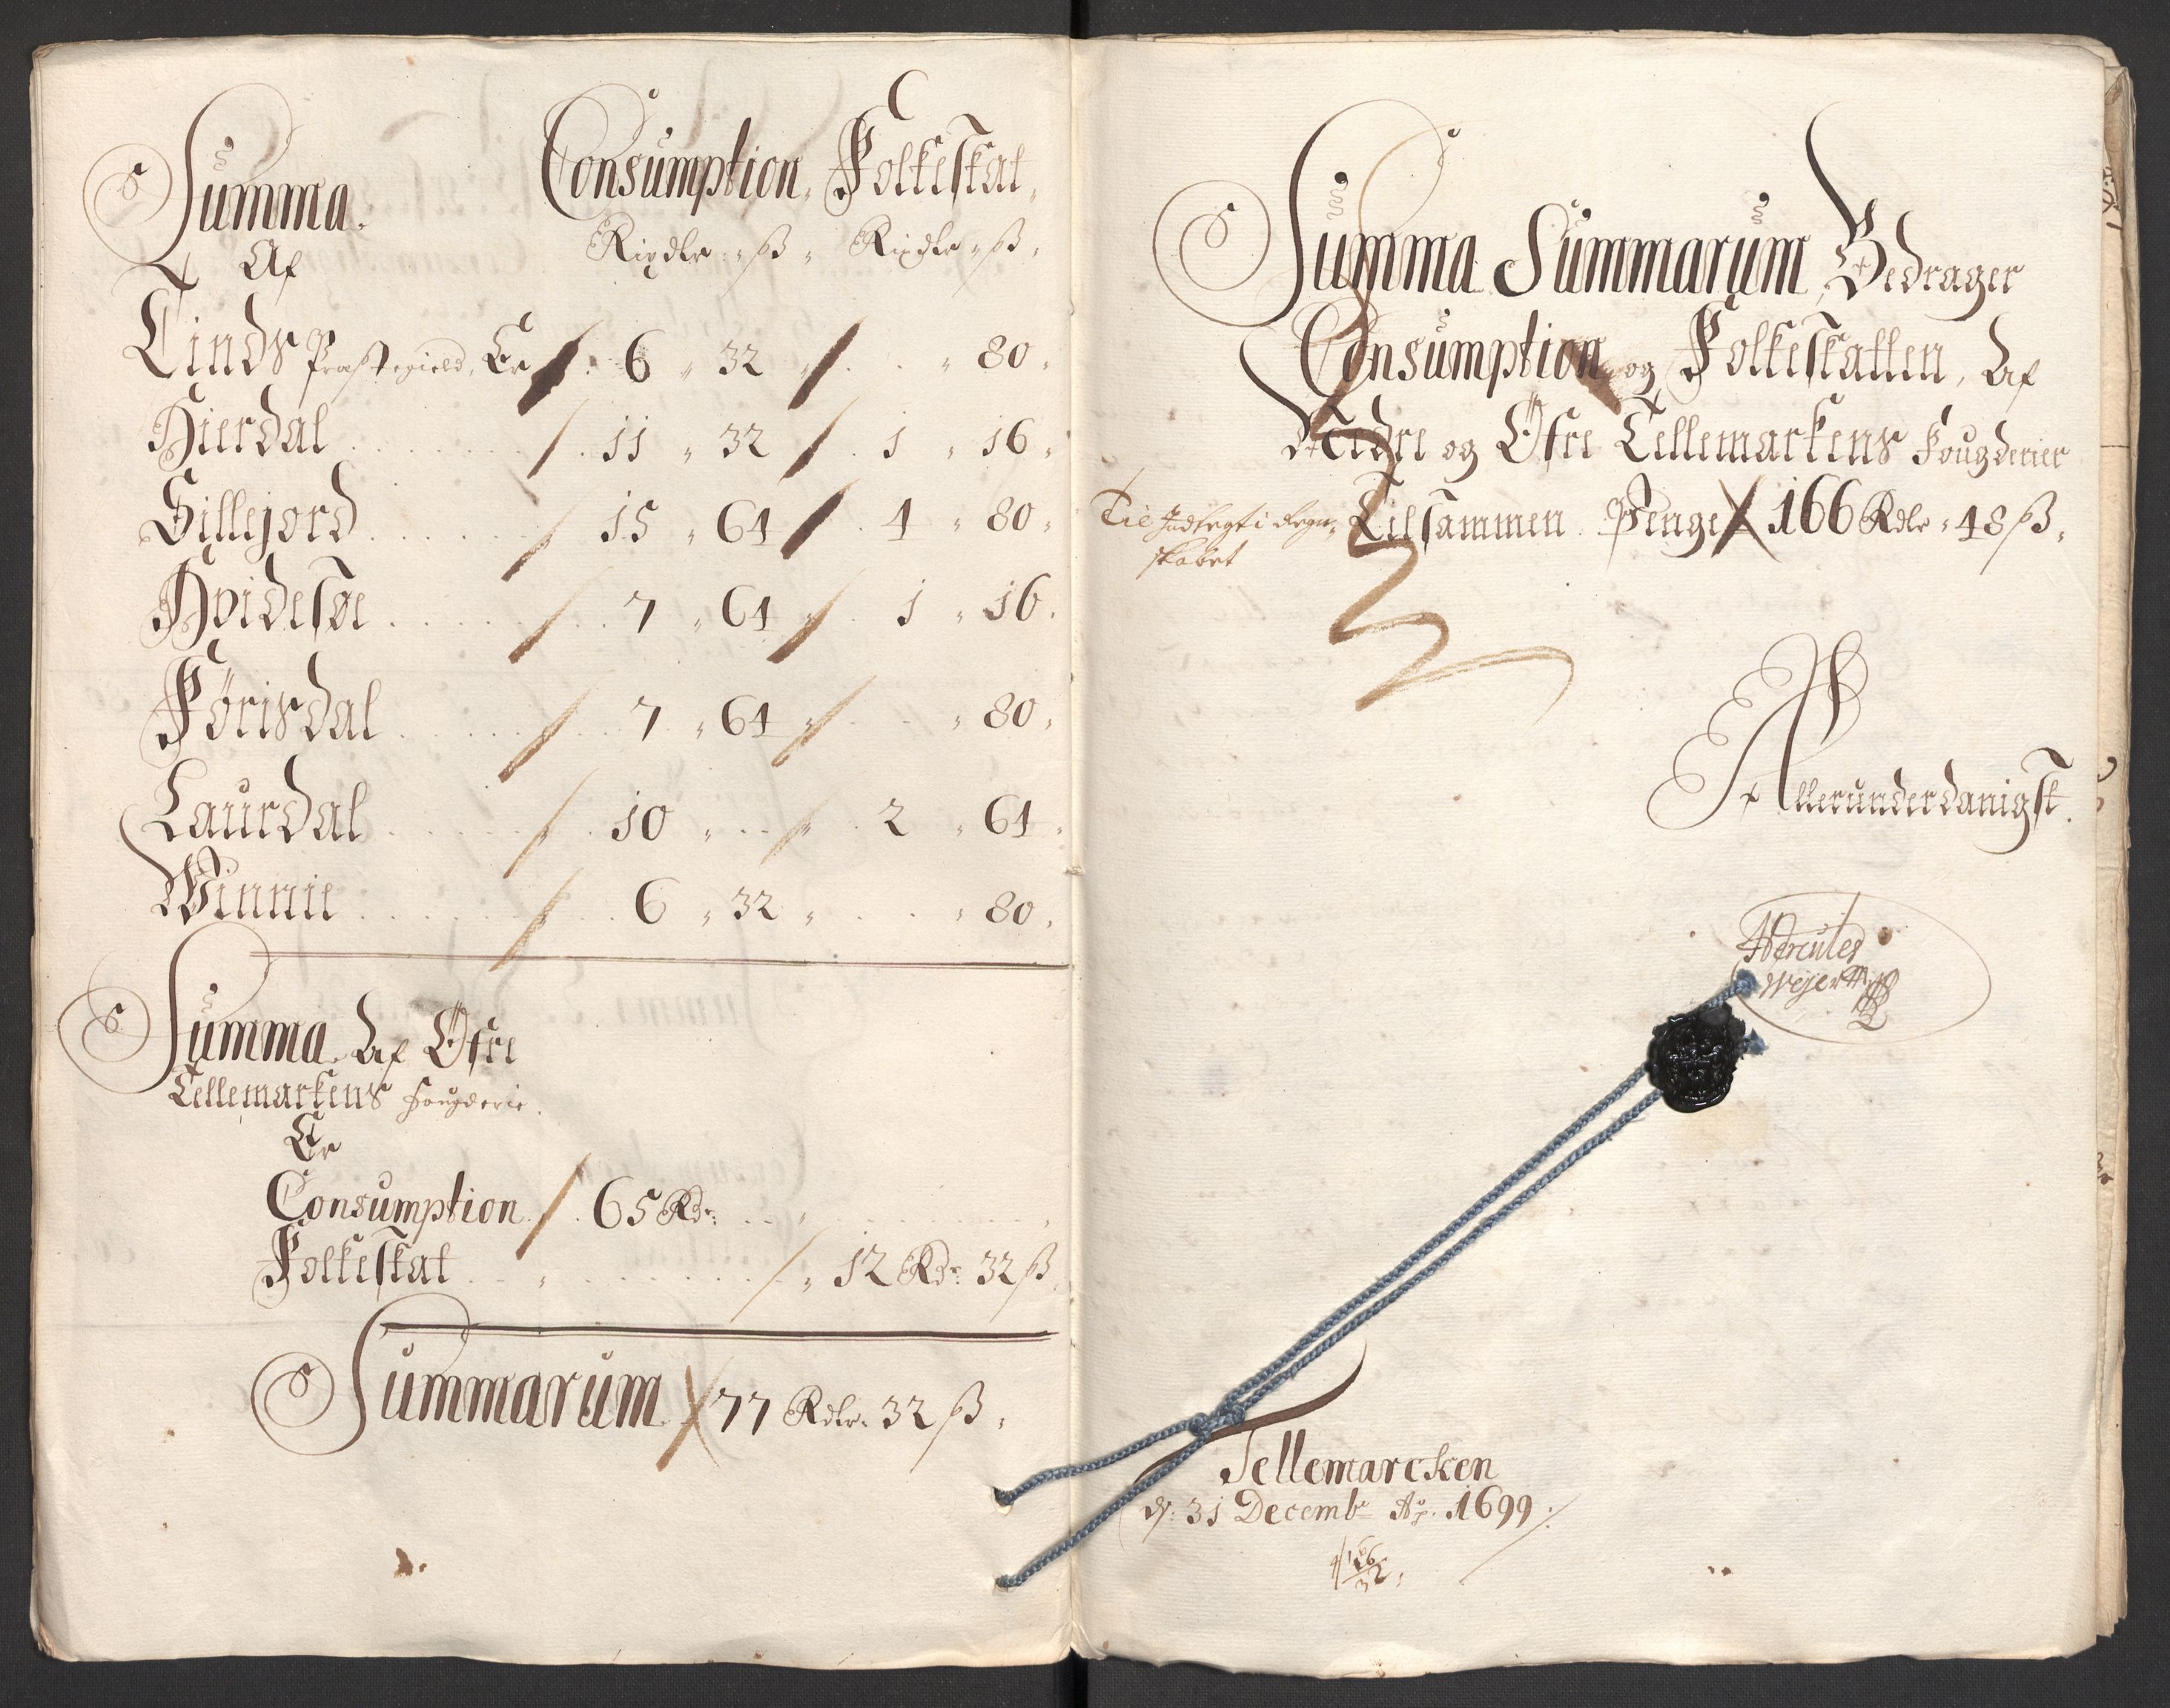 Summa. Consumption, Folkeskat,
Af Rixdlr: " ß " Rixdlr " ß "
Tinds Præstegield, Er . 6 " 32 " . . " 80 "
Hierdal . . . . . . 11 " 32 . 1 " 16 "
Sillejord . . . . . . 15 " 64 . 4 " 80 "
Hvidesøe . . . . . . 7 " 64 " . 1 " 16 .
Förisdal . . . . . . 7 " 64 " . . " 80 "
Laurdal . . . . . . 10 " . . " . 2 " 64 .
Winnie . . . . . . 6 " 32 " . . " 80 .
Summa. Af Öfre
Tellemarkens Fougderie.
Er
Consumption . 65 Rdr: . . "
Folkeskat . . " . . . . " 12 Rdr: 32 ß
Summarum 77 Rdlr. 32 ß "
Summa Summarum, Bedrager
Consumption og Folkeskatten, Af
Nedre og Öfre Tellemarkens Fougderier
Tilsammen Penge 166 Rdlr " 48 ß "
Til Indtegt i Regn-
skabet
Allerunderdanigst.
Hercules
Weyer
Tellemarcken
d: 31 Decembr Ao. 1699 .